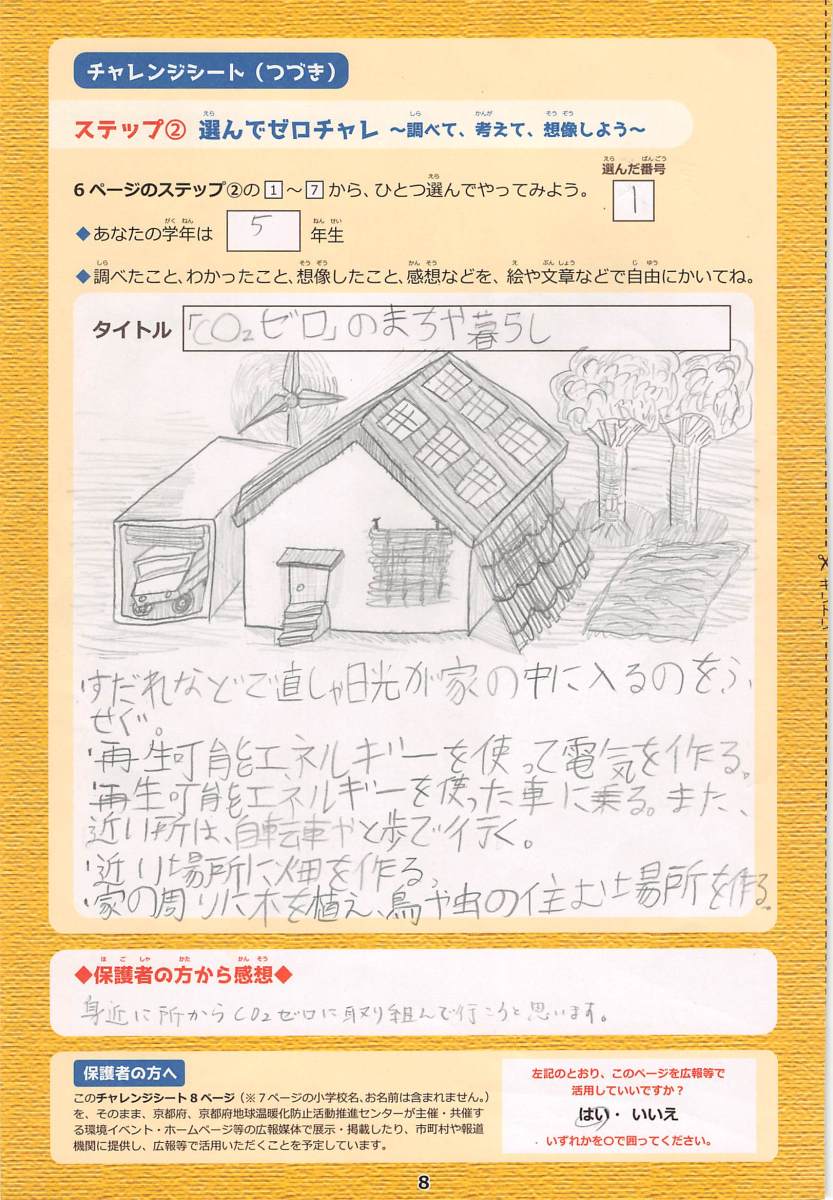 チャレンジシート（つづき）
ステップ② 選んでゼロチャレ ～調べて、考えて、想像しよう～
6ページのステップ②の1～7から、ひとつ選んでやってみよう。
選んだ番号 1
◆あなたの学年は 5 年生
◆調べたこと、わかったこと、想像したこと、感想などを、絵や文章などで自由にかいてね。
タイトル 「CO₂ゼロ」のまちや暮らし
・すだれなどで直しゃ日光が家の中に入るのをふ
せぐ。
・再生可能エネルギーを使って電気を作る。
・再生可能エネルギーを使った車に乗る。また、
近い所は、自転車やと歩で行く。
・近り場所に畑を作る。
・家の周りに木を植え、鳥や虫の住む場所を作る。
◆保護者の方から感想◆
身近に所からCO₂ゼロに取り組んで行こうと思います。
保護者の方へ
このチャレンジシート8ページ（※7ページの小学校名、お名前は含まれません。）
を、そのまま、京都府、京都府地球温暖化防止活動推進センターが主催・共催す
る環境イベント・ホームページ等の広報媒体で展示・掲載したり、市町村や報道
機関に提供し、広報等で活用いただくことを予定しています。
左記のとおり、このページを広報等で
活用していいですか？
はい・いいえ
いずれかを○で囲ってください。
8